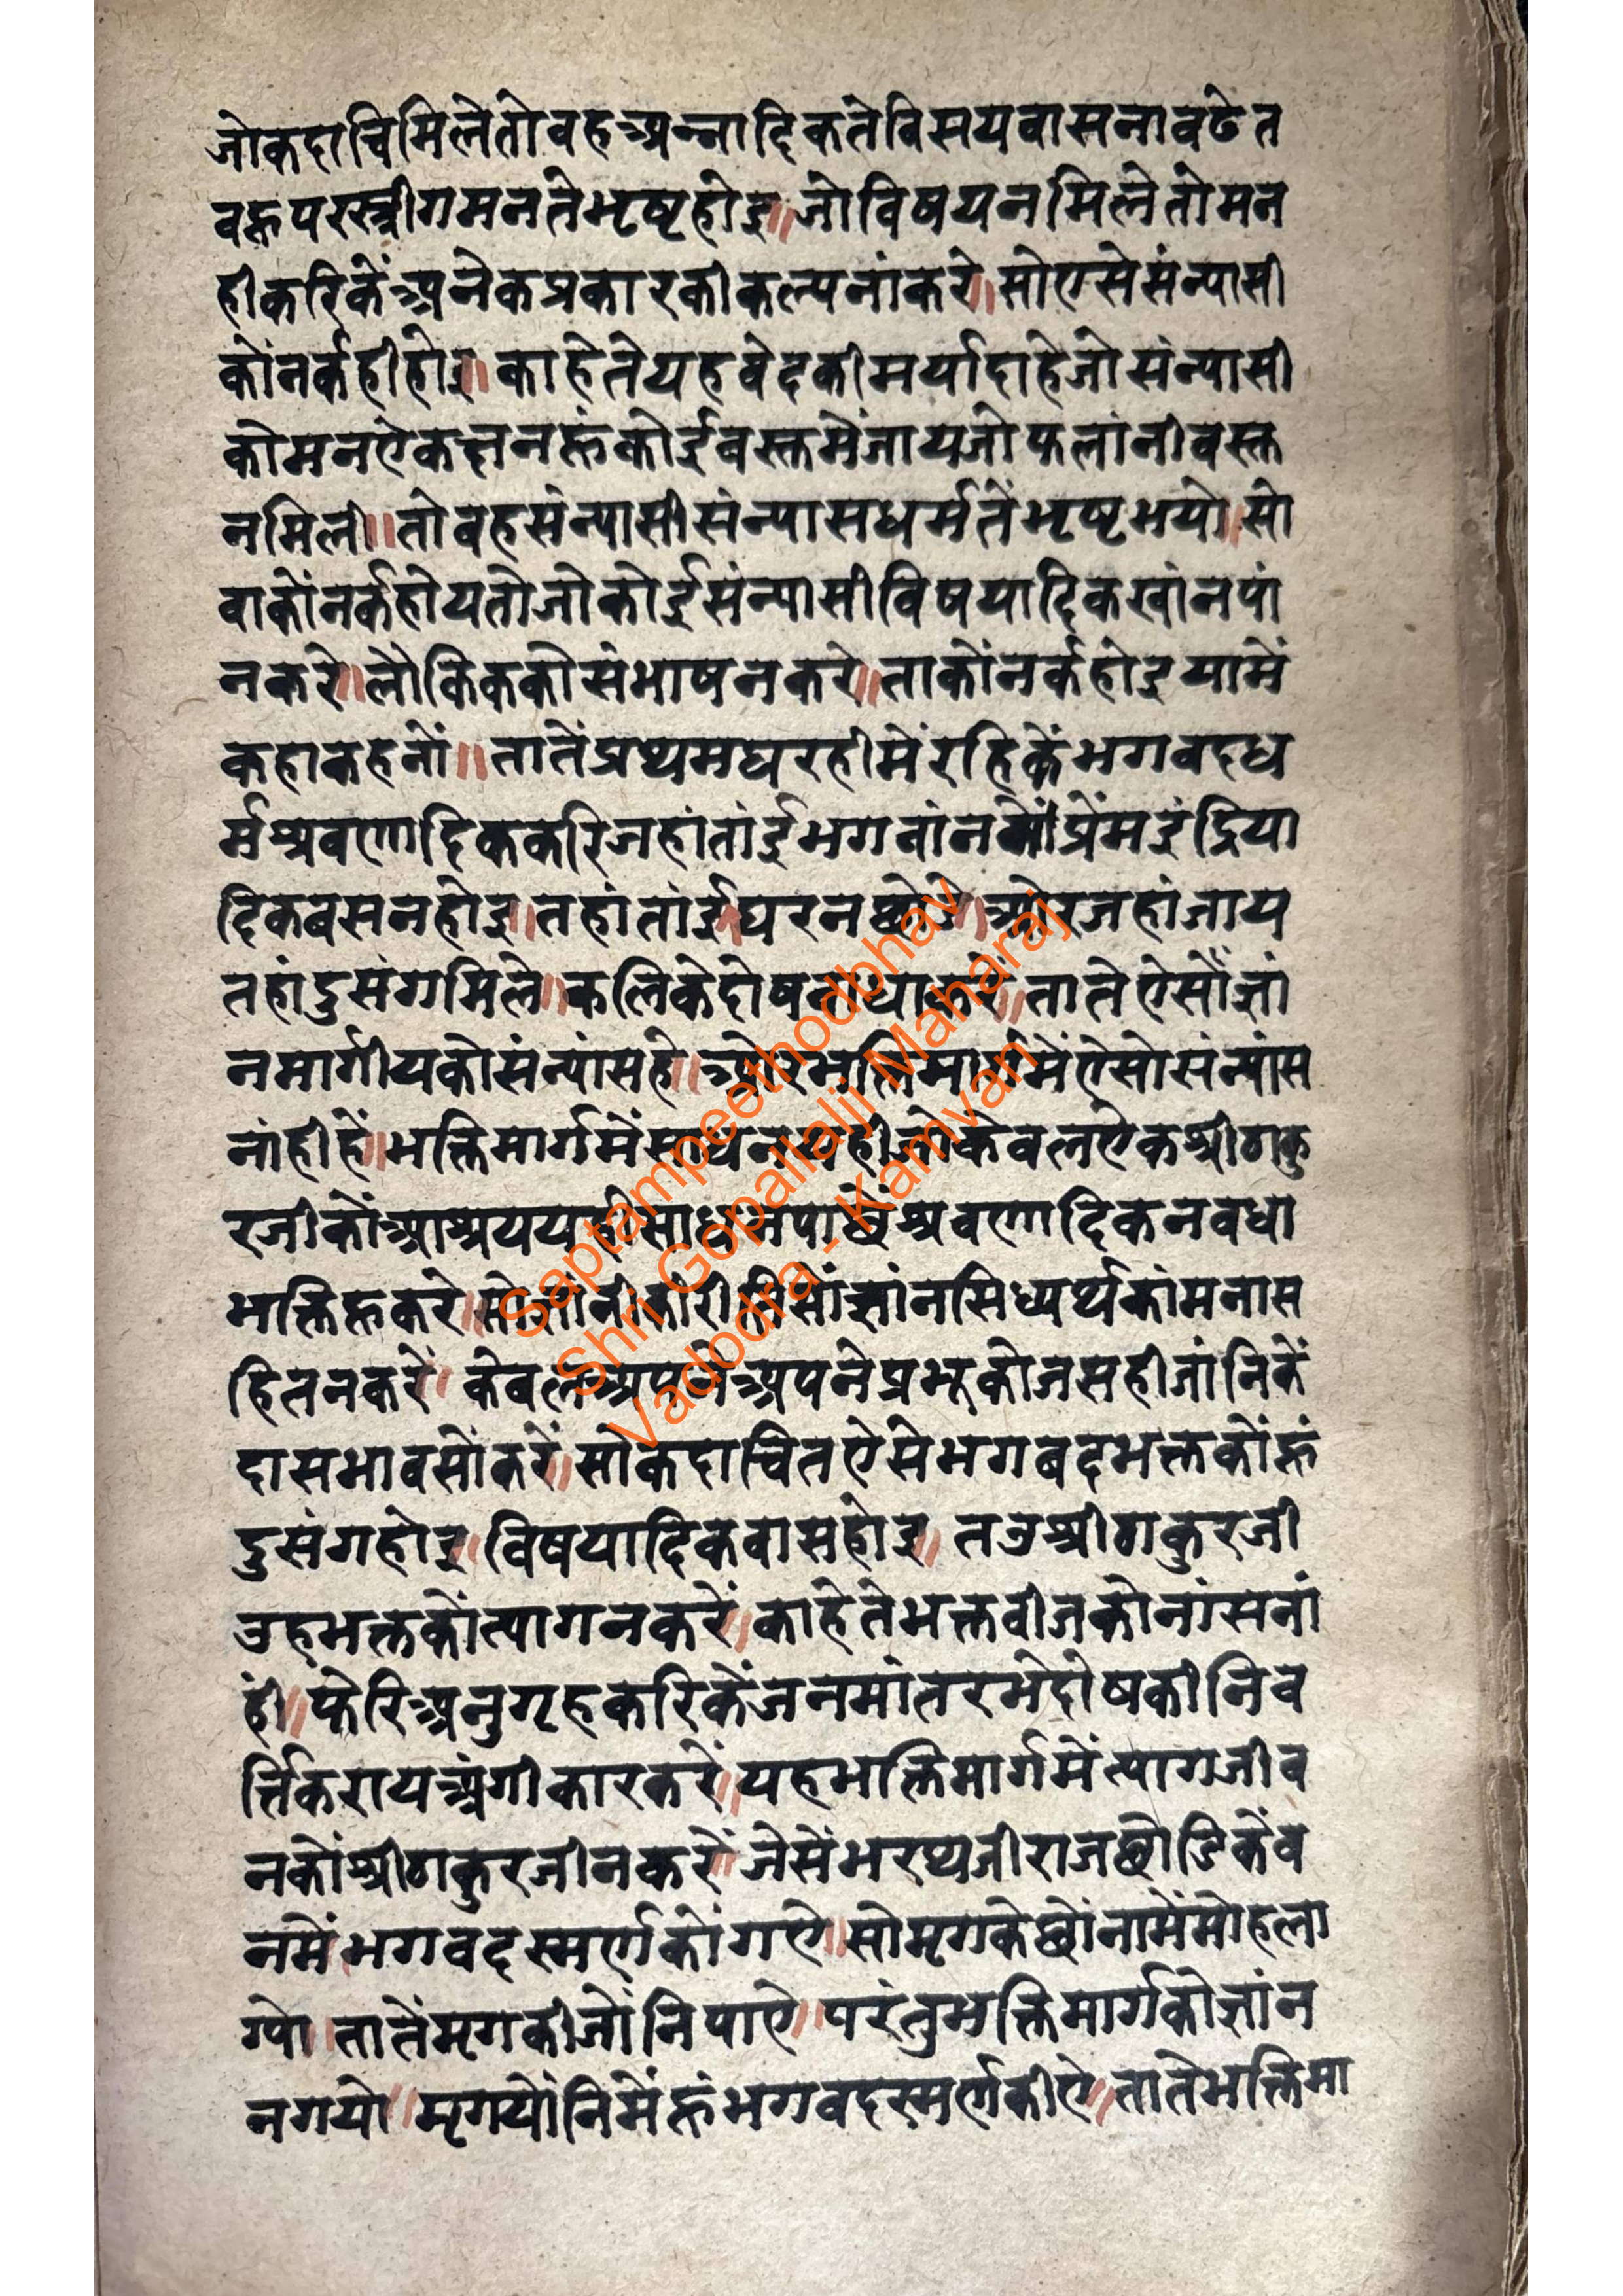 जोकदाचिमिलेतोवहअन्नादिकतेविसयवासनाबढेत
बहूपरस्त्रीगमनतेभृष्टहोइ॥जोविषयनमिलेतोमन
हीकरिकेंअनेकप्रकारकीकल्पनांकरे॥सोएसेसंन्यासी
कोंनर्कहीहोइ॥काहेतेयहवेदकीमर्यादाहेजोसंन्यासी
कोमनऐकछनहूंकोईबस्तमेंजायजोफलांनीवस्त
नमिली॥तोवहसंन्यासीसंन्यासधर्मतेंभृष्टभयो॥सो
वाकोंनर्कहोयतोजोकोईसंन्यासीविषयादिकखांनपां
नकरे॥लौकिककोसंभाषनकरे॥ताकोंनर्कहोइयामें
कहाकहनों॥तातेंप्रथमघरहीमेंरहिकेंभगवदध
र्मश्रवणादिककरिजहांतांईभगवांनकोंप्रेंमइंद्रिया
दिकबसनहोइ॥तहांतांईघरनछोडे॥ओरजहांजाय
तहांदुसंगमिले॥कलिकेदोषबाधाकरें॥तातेऐसोंज्ञां
नमार्गीयकोसंन्यांसहे॥ओरभक्तिमार्गमेंऐसोसंन्यांस
नांहीहें॥भक्तिमार्गमेंसाधनयहीजोकेवलऐकश्रीठाकु
रजीकोंआश्रययहीसाधनपाछेंश्रवणादिकनवधा
भक्तिहूकरे॥सोज्ञांनीकीरीतिसोंज्ञांनसिध्यर्थकांमनास
हितनकरें॥केबलअपनेअपनेप्रभुकोजसहीजांनिकें
दासभावसोंकरें॥सोकदाचितऐसेभगबदभक्तकोंहूं
दुसंगहोइ॥विषयादिकबासहोइ॥तउश्रीठाकुरजी
उहभक्तकोंत्यागनकरें॥काहेतेभक्तवीजकोनांसनां
हीं॥फेरिअनुगृहकरिकेंजनमांतरमेदोषकीनिव
र्त्तिकरायअंगीकारकरें॥यहभक्तिमार्गमेंत्यागजीव
नकोंश्रीठाकुरजीनकरें॥जेसेंभरथजीराजछोडिकेंव
नमेंभगवदस्मर्णकोंगऐ॥सोमृगकेछोंनामेंमोहला
ग्यो॥तातेंमृगकीजोंनिपाऐ॥परंतुभक्तिमार्गकोज्ञांन
नगयो॥मृगयोंनिमेंहूंभगवदस्मर्णकीऐ॥तातेभक्तिमा
Saptampeethodbhav
Shri Gopallalji Maharaj
Vadodra - Kamvan